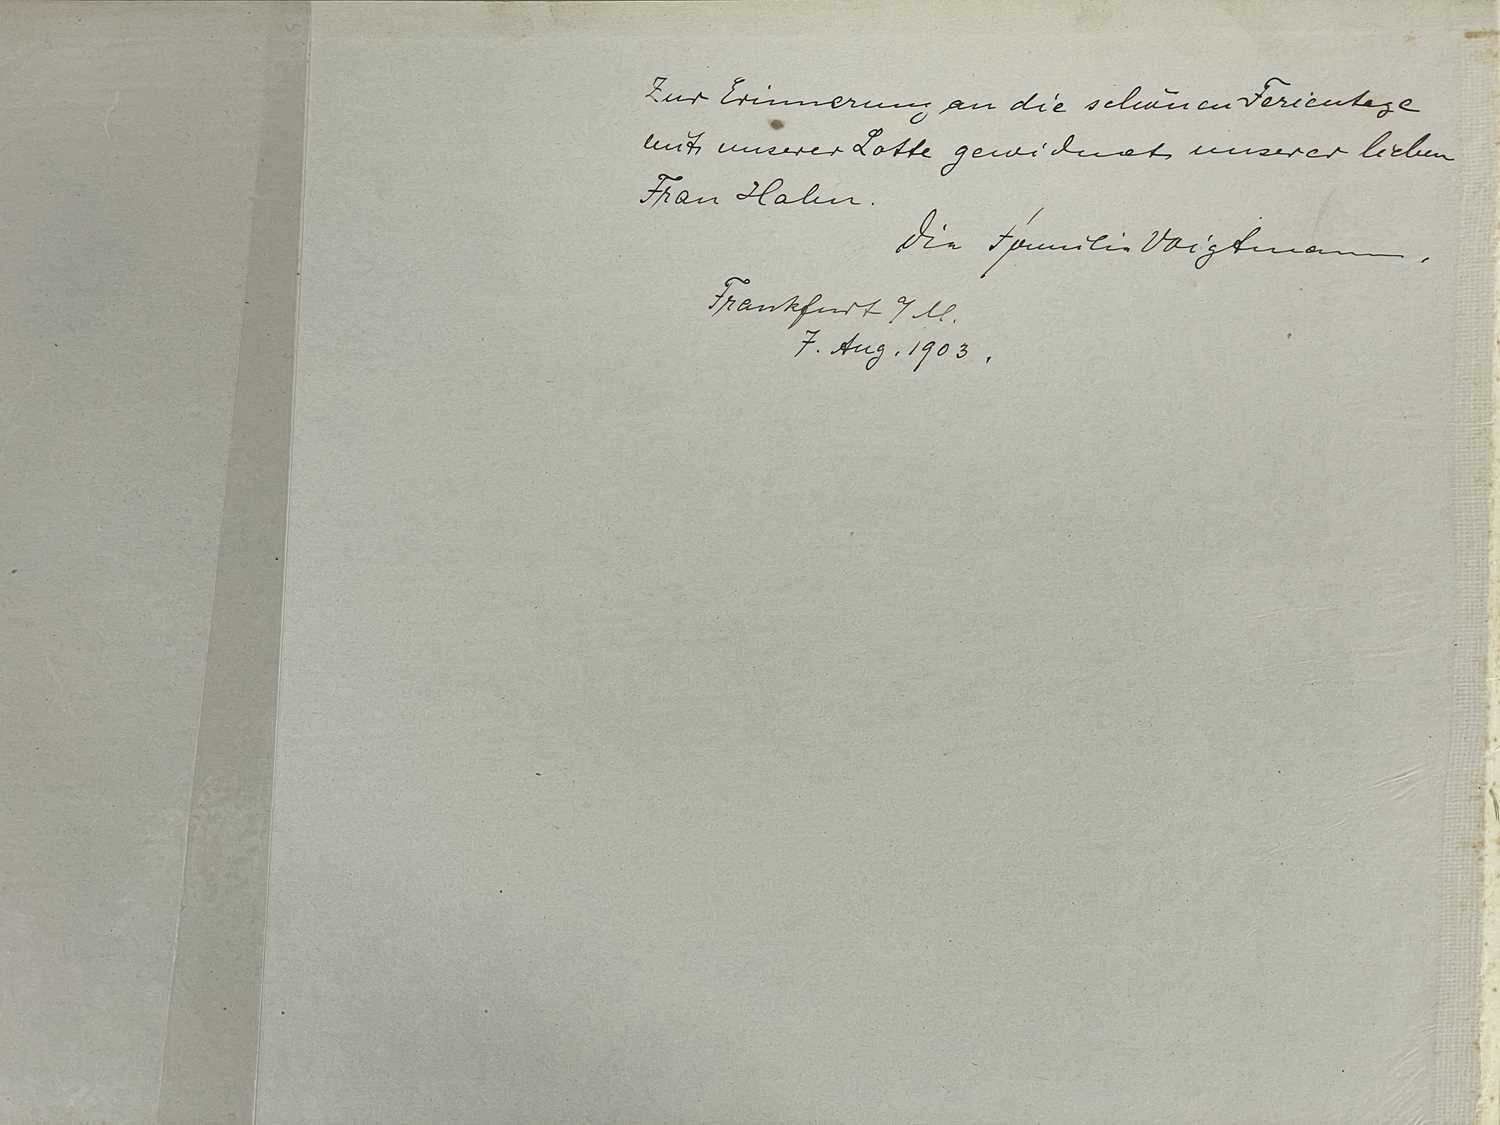 Zur Erinnerung an die schönen Ferientage
mit unserer Lotte gewidmet unserer lieben
Frau Hahn.
Die Familie Voigtmann.
Frankfurt a/M.
7. Aug. 1903.